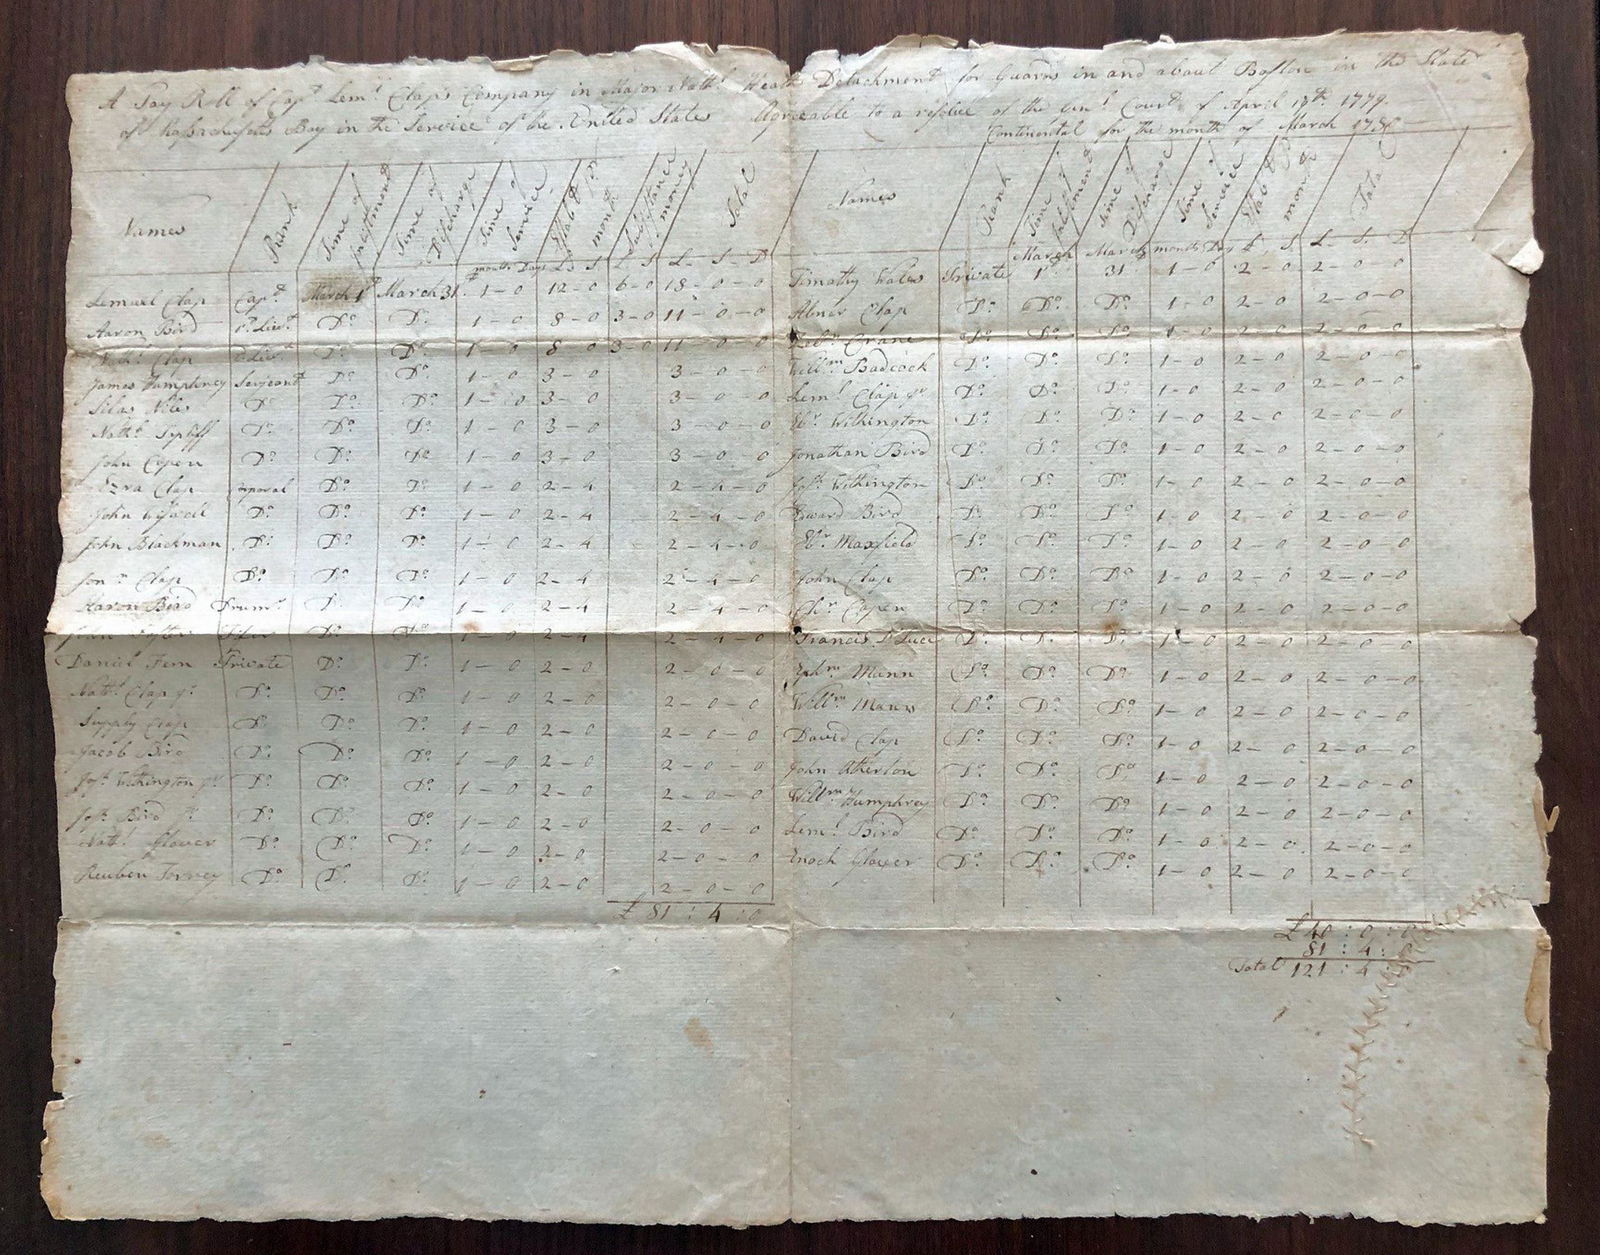 A Pay Roll of Capt Leml Clap's Company in Major Nathl Heath Detachment for Guards in and about Boston in the State
of Massachusetts Bay in the Service of the United States Agreeable to a resolve of the Genl Court of April 13th 1779
Continental for the month of March 1780
Names Rank Time of Time of Discharge Time of Service Establt pr month Subsistance money Total
months Days L S L S L S D
Lemuel Clap Capt March 1st March 31st 1 - 0 12 - 0 6 - 0 18 - 0 - 0
Aaron Bird 1st Lieut Do Do 1 - 0 8 - 0 3 - 0 11 - 0 - 0
Nathl Clap 2 Lieut Do Do 1 - 0 8 - 0 3 - 0 11 - 0 - 0
James Humphrey Serjeant Do Do 1 - 0 3 - 0 3 - 0 - 0
Silas Niles Do Do Do 1 - 0 3 - 0 3 - 0 - 0
Nathl Do Do Do 1 - 0 3 - 0 3 - 0 - 0
John Capen Do Do Do 1 - 0 3 - 0 3 - 0 - 0
Ezra Clap Corporal Do Do 1 - 0 2 - 4 2 - 4 - 0
John Do Do Do 1 - 0 2 - 4 2 - 4 - 0
John Blackman Do Do Do 1 - 0 2 - 4 2 - 4 - 0
Jonn Clap Do Do Do 1 - 0 2 - 4 2 - 4 - 0
Aaron Bird Drumr Do Do 1 - 0 2 - 4 2 - 4 - 0
John Fifer Do Do 1 - 0 2 - 4 2 - 4 - 0
Daniel Fern Private Do Do 1 - 0 2 - 0 2 - 0 - 0
Nathl Clap jr Do Do Do 1 - 0 2 - 0 2 - 0 - 0
Supply Clap Do Do Do 1 - 0 2 - 0 2 - 0 - 0
Jacob Bird Do Do Do 1 - 0 2 - 0 2 - 0 - 0
Josh Withington jr Do Do Do 1 - 0 2 - 0 2 - 0 - 0
Josh Bird jr Do Do Do 1 - 0 2 - 0 2 - 0 - 0
Nathl Glover Do Do Do 1 - 0 2 - 0 2 - 0 - 0
Reuben Torrey Do Do Do 1 - 0 2 - 0 2 - 0 - 0
£ 81 : 4 : 0
Names Rank Time of Time of Discharge Time of Service Establt pr month Total
months Days L S L S D
Timothy Wales Private March 1st March 31 1 - 0 2 - 0 2 - 0 - 0
Abner Clap Do Do Do 1 - 0 2 - 0 2 - 0 - 0
Crane Do Do Do 1 - 0 2 - 0 2 - 0 - 0
Willm Badcock Do Do Do 1 - 0 2 - 0 2 - 0 - 0
Leml Clap jr Do Do Do 1 - 0 2 - 0 2 - 0 - 0
Ebr Withington Do Do Do 1 - 0 2 - 0 2 - 0 - 0
Jonathan Bird Do Do Do 1 - 0 2 - 0 2 - 0 - 0
Josh Withington Do Do Do 1 - 0 2 - 0 2 - 0 - 0
Edward Bird Do Do Do 1 - 0 2 - 0 2 - 0 - 0
Ebr Maxfield Do Do Do 1 - 0 2 - 0 2 - 0 - 0
John Clap Do Do Do 1 - 0 2 - 0 2 - 0 - 0
Chr Capen Do Do Do 1 - 0 2 - 0 2 - 0 - 0
Francis D Luce Do Do Do 1 - 0 2 - 0 2 - 0 - 0
Ephm Mann Do Do Do 1 - 0 2 - 0 2 - 0 - 0
Willm Mann Do Do Do 1 - 0 2 - 0 2 - 0 - 0
David Clap Do Do Do 1 - 0 2 - 0 2 - 0 - 0
John Atherton Do Do Do 1 - 0 2 - 0 2 - 0 - 0
Willm Humphrey Do Do Do 1 - 0 2 - 0 2 - 0 - 0
Leml Bird Do Do Do 1 - 0 2 - 0 2 - 0 - 0
Enoch Glover Do Do Do 1 - 0 2 - 0 2 - 0 - 0
£ 40 : 0 : 0
81 : 4 : 0
Total 121 : 4 :